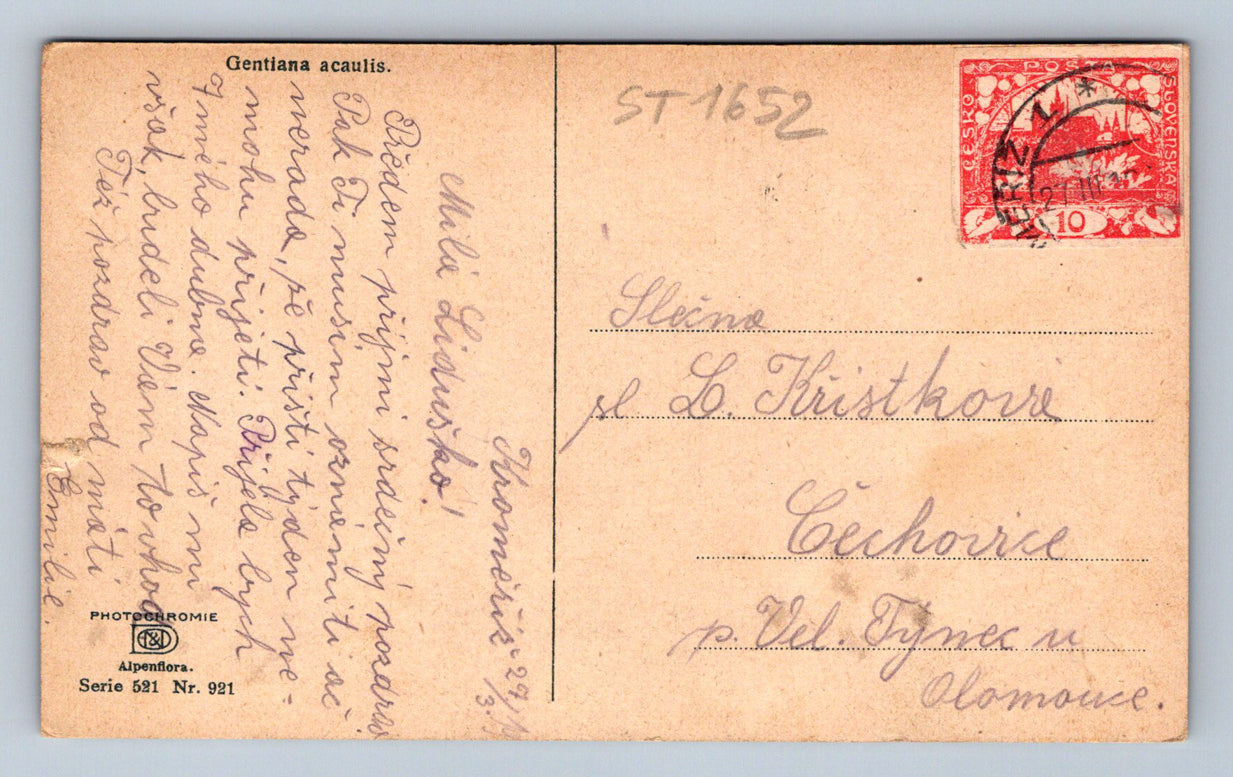 Gentiana acaulis.
ST 1652
ČESKO
POŠTA
SLOVENSKA
10
MĚŘÍŽ 1 *
27 III
Kroměříž 29/
3.
Milá Liduško!
Předem přijmi srdečný pozdrav
Pak Ti musím oznámiti ač
nerada, že příští týden ne=
mohu přijeti. Přijela bych
7 mého dubna. Napiš mi
však, budeli Vám to vhod
Též pozdrav od máti
Emilie.
Slečna
sl L. Křistkova
Čechovice
p. Vel. Týnec u
Olomouce.
PHOTOCHROMIE
Alpenflora.
Serie 521 Nr. 921